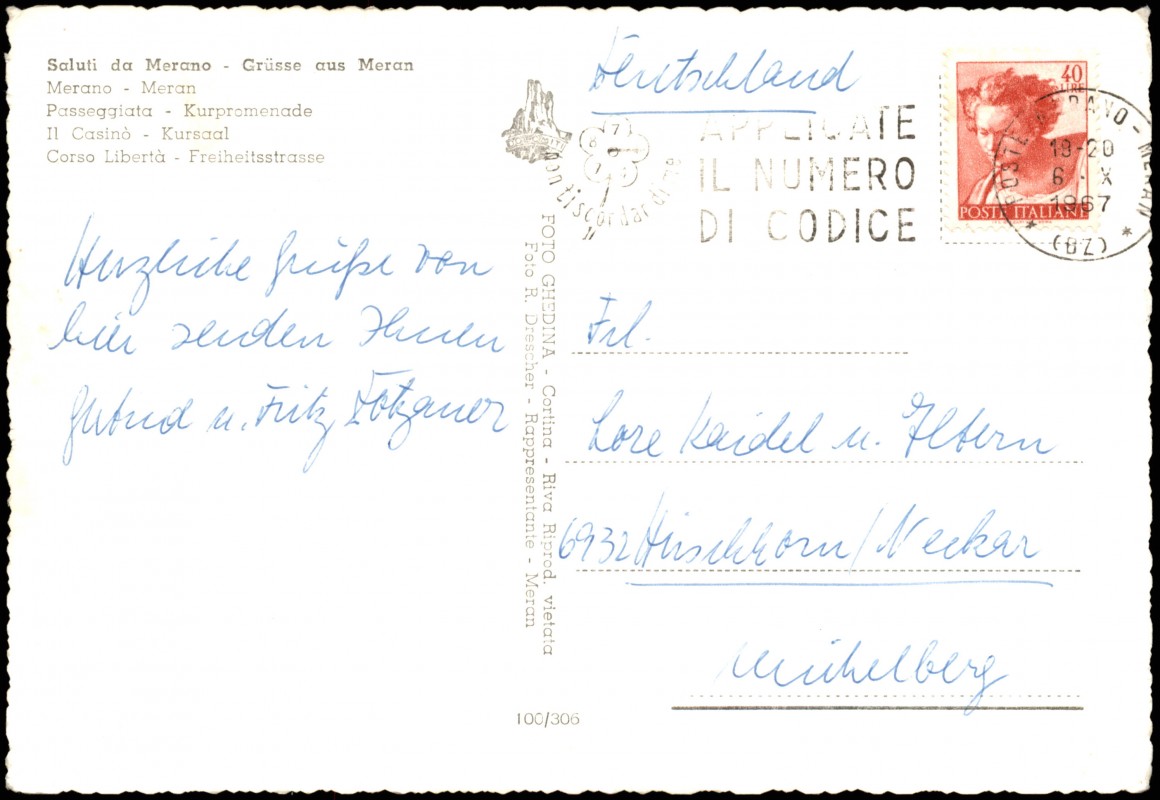 Saluti da Merano - Grüsse aus Meran
Merano - Meran
Passeggiata - Kurpromenade
Il Casinò - Kursaal
Corso Libertà - Freiheitsstrasse
Herzliche Grüße von
hier senden Ihnen
u. Fritz
FOTO GHEDINA - Cortina - Riva Riprod. vietata
Foto R. Drescher - Rappresentante - Meran
100/306
Deutschland
non ti scordar di me
APPLICATE
IL NUMERO
DI CODICE
40
LIRE
POSTE ITALIANE
POSTE MERANO - MERAN
19-20
6 · X
1967
* (BZ) *
Frl.
Lore Kaidel u. Eltern
6932 Hirschhorn/Neckar
Michelberg